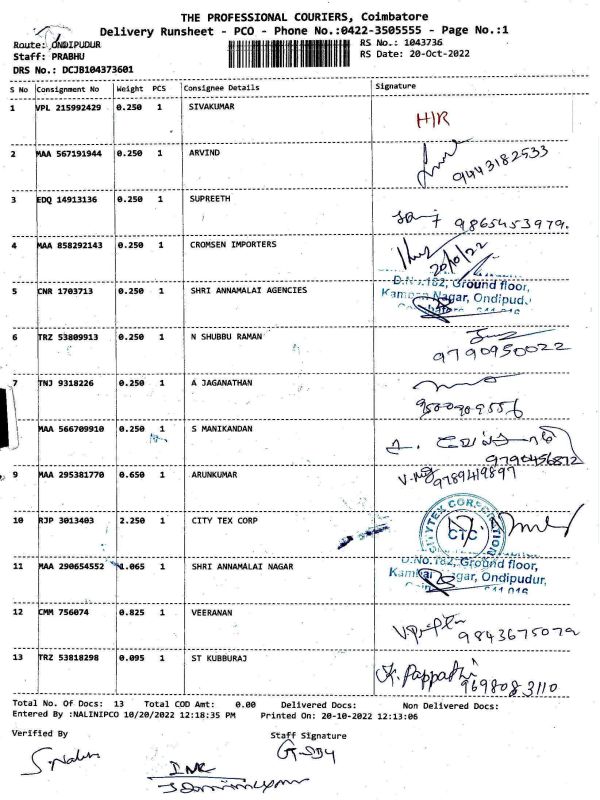 THE PROFESSIONAL COURIERS, Coimbatore
Delivery Runsheet - PCO - Phone No.:0422-3505555 - Page No.:1
Route: ONDIPUDUR
RS No.: 1043736
Staff: PRABHU
RS Date: 20-Oct-2022
DRS No.: DCJB104373601
S No Consignment No Weight PCS Consignee Details Signature
1 VPL 215992429 0.250 1 SIVAKUMAR H/R
2 MAA 567191944 0.250 1 ARVIND
9443182533
3 EDQ 14913136 0.250 1 SUPREETH
9865453979.
4 MAA 858292143 0.250 1 CROMSEN IMPORTERS
20/10/22
D.No.162, Ground floor,
5 CNR 1703713 0.250 1 SHRI ANNAMALAI AGENCIES
Nagar, Ondipud
6 TRZ 53809913 0.250 1 N SHUBBU RAMAN
9790950022
7 TNJ 9318226 0.250 1 A JAGANATHAN
MAA 566709910 0.250 1 S MANIKANDAN
9790456872
9 MAA 295381770 0.650 1 ARUNKUMAR
9789419897
10 RJP 3013403 2.250 1 CITY TEX CORP
CITYTEX CORPORATION
CTC
D.No.162, Ground floor,
11 MAA 290654552 1.065 1 SHRI ANNAMALAI NAGAR
Ondipudur,
12 CMM 756074 0.825 1 VEERANAN
9843675079
13 TRZ 53818298 0.095 1 ST KUBBURAJ
K. Pappathi
9698083110
Total No. Of Docs: 13 Total COD Amt: 0.00 Delivered Docs: Non Delivered Docs:
Entered By :NALINIPCO 10/20/2022 12:18:35 PM Printed On: 20-10-2022 12:13:06
Verified By
Staff Signature